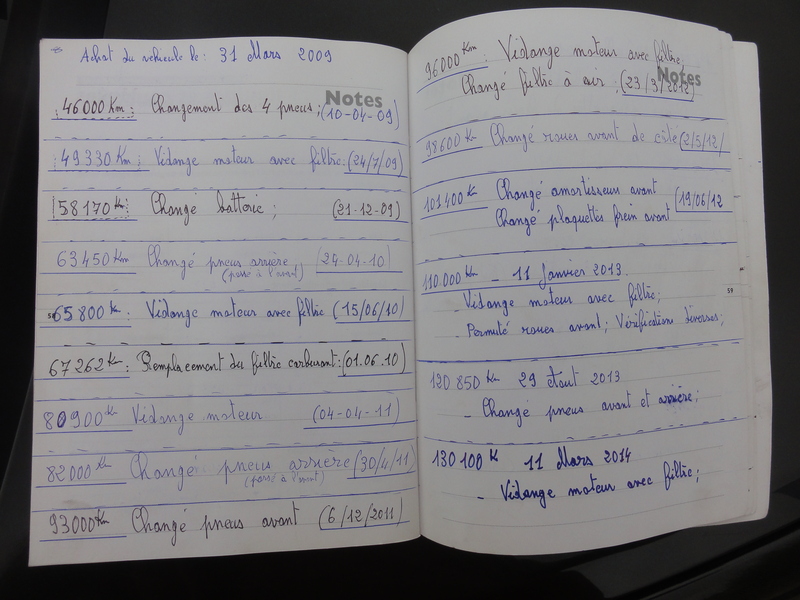 Achat du vehicule le: 31 Mars 2009
Notes
46000 Km: Changement des 4 pneus; (10-04-09)
49330 Km; Vidange moteur avec filtre: (24/7/09)
58170 K: Changé batterie; (21-12-09)
63450 Km Changé pneus arrière (24-04-10)
(passé à l'avant)
65800 K: Vidange moteur avec filtre (15/06/10)
67262 Km: Remplacement du filtre carburant: (01.06.10)
80900 Km Vidange moteur (04-04-11)
82000 Km Changé pneus arrière (30/4/11
(passé à l'avant)
93000 Km Changé pneus avant (6/12/2011)
96000 Km: Vidange moteur avec filtre;
Notes
Changé filtre à air; (23/3/2012)
98600 Km Changé roues avant de côté (2/5/12/
101400 K Changé amortisseur avant (19/06/12
Changé plaquettes frein avant
110.000 Km - 11 Janvier 2013.
- Vidange moteur avec filtre;
59
- Permuté roues avant; Vérification diverses;
120 850 Km 29 Aout 2013
- Changé pneus avant et arrière;
130 100 K 11 Mars 2014
- Vidange moteur avec filtre;